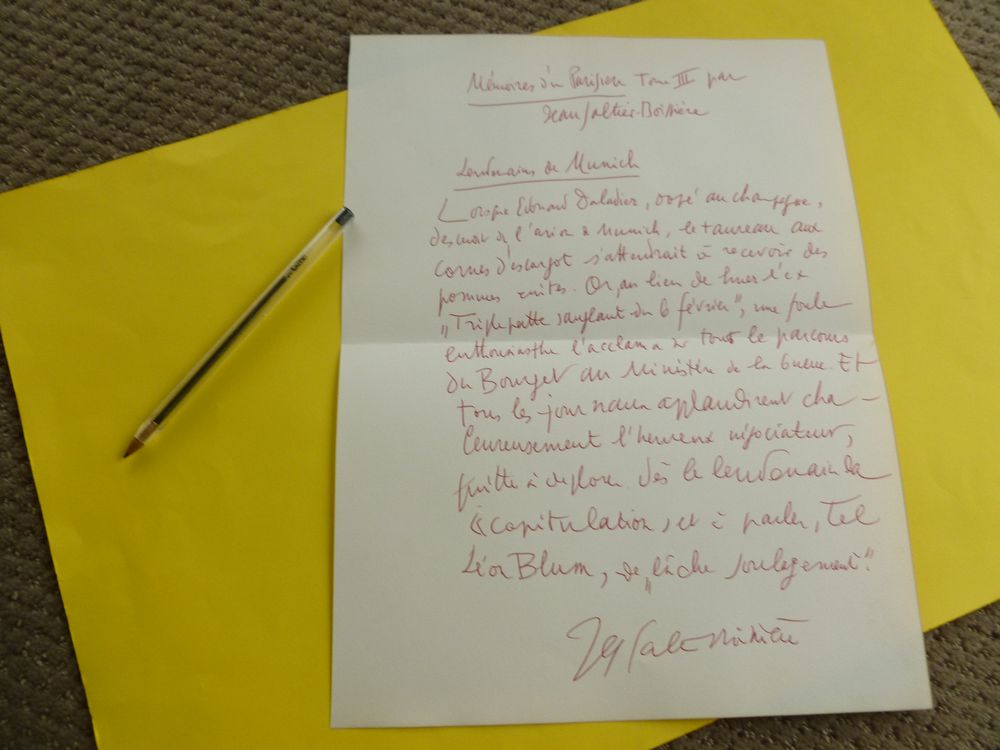 Mémoires d'un Parisien Tome III par
Jean Galtier-Boissière
Lendemains de Munich
Lorsque Edouard Daladier, dopé au champagne,
descendit de l'avion à Munich, le taureau aux
cornes d'escargot s'attendrait à recevoir des
pommes cuites. Or, au lieu de huer l'ex
"Triplepatte sanglant du 6 février", une foule
enthousiaste l'acclama sur tout le parcours
du Bourget au Ministère de la Guerre. Et
tous les journaux applaudirent cha-
leureusement l'heureux négociateur,
quitte à déplorer dès le lendemain la
"capitulation, et à parler, tel
Léon Blum, de "lâche soulagement".